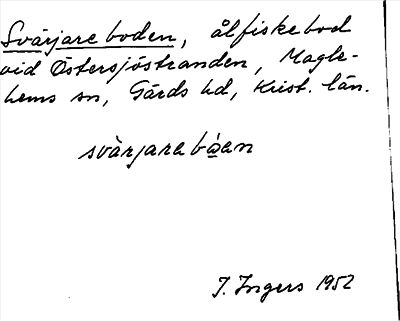 Svärjareboden, ålfiskebod
vid Östersjöstranden, Magle-
hems sn, Gärds hd, Krist. län.
svàrjarebǻen
I. Ingers 1952